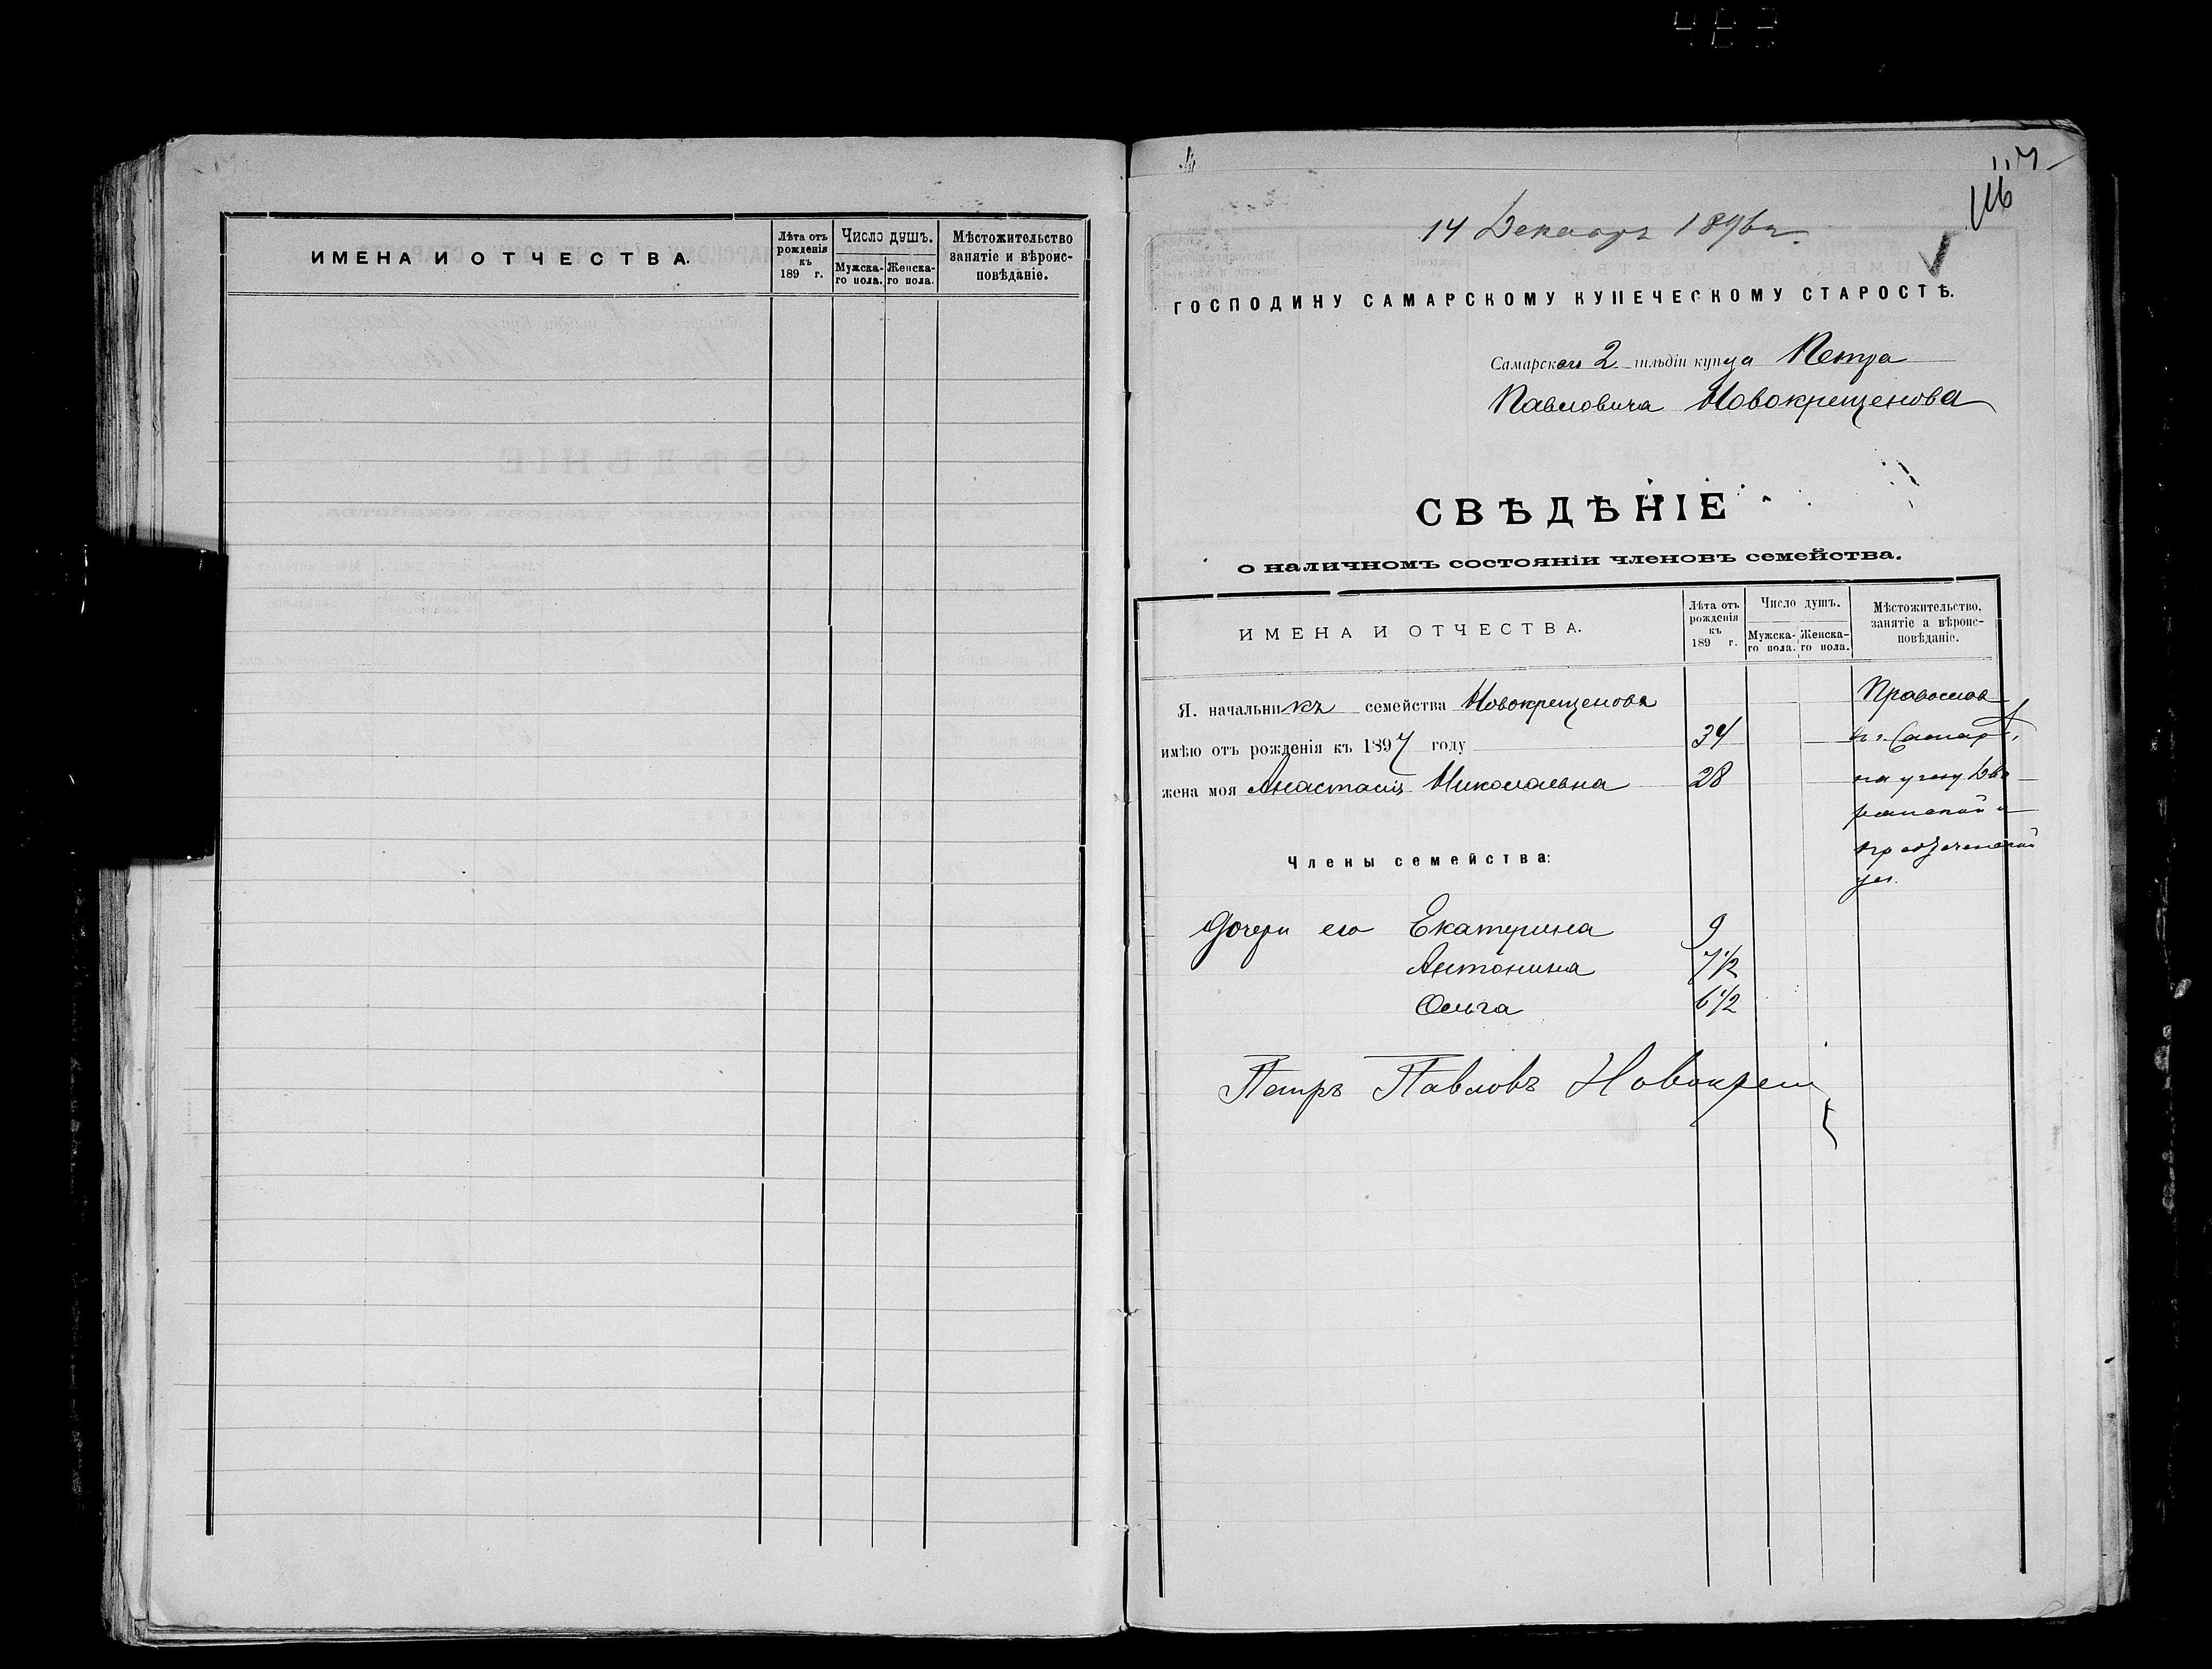 ИМЕНА И ОТЧЕСТВА.
Лѣта отъ рожденія къ 189 г.
Число душъ.
Мужска-го пола.
Женска-го пола.
Мѣстожительство занятіе и вѣроис-повѣданіе.
117
116
14 Декабрь 1896 г.
ГОСПОДИНУ САМАРСКОМУ КУПЕЧЕСКОМУ СТАРОСТѢ.
Самарскаго 2 гильдіи купца Петра
Павловича Новокрещенова
СВѢДѢНІЕ
о наличномъ состояніи членовъ семейства.
ИМЕНА И ОТЧЕСТВА.
Лѣта отъ рожденія къ 189 г.
Число душъ.
Мужска-го пола.
Женска-го пола.
Мѣстожительство, занятіе а вѣроис-повѣданіе.
Я. начальникъ семейства Новокрещеновъ Православ
имѣю отъ рожденія къ 1897 году 34 въ г. Самарѣ,
жена моя Анастасія Николаевна 28 на углу Дво
рянской и
Предтеченской
ул.
Члены семейства:
Дочери его Екатерина 9
Антонина 7 1/2
Ольга 6 1/2
Петръ Павловъ Новокрещ